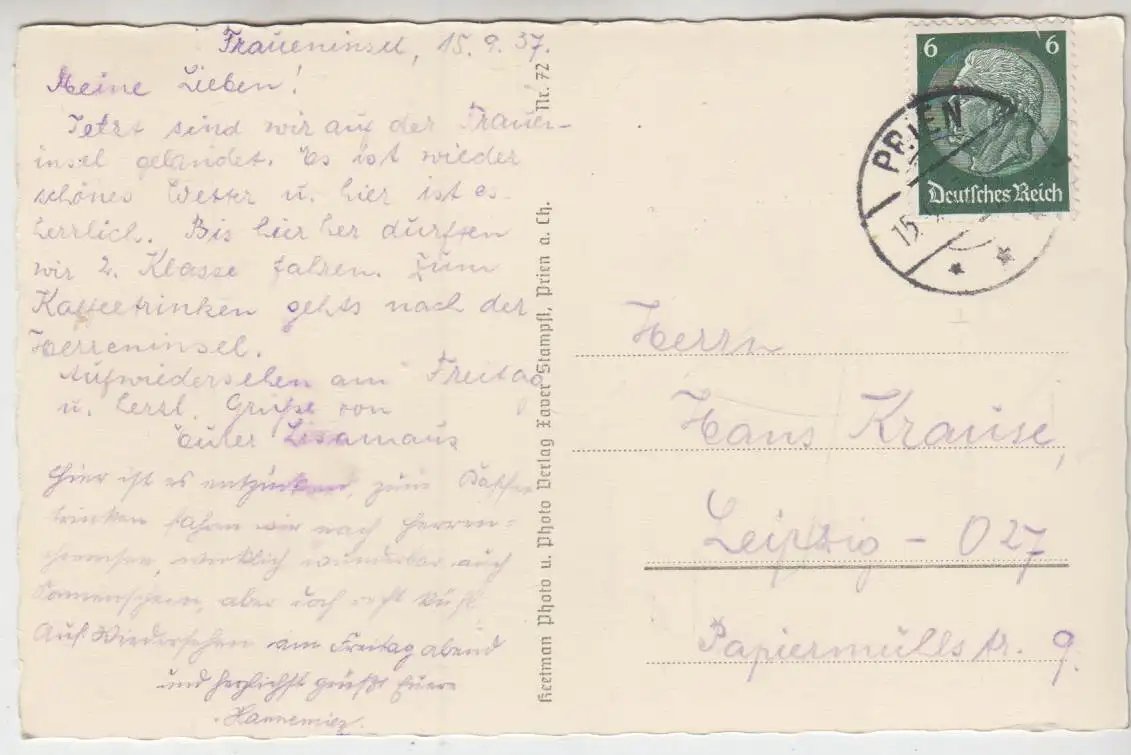 Fraueninsel, 15.9.37.
Meine Lieben!
Jetzt sind wir auf der Frauen-
insel gelandet. Es ist wieder
schönes Wetter u. hier ist es
herrlich. Bis hier her durften
wir 2. Klasse fahren. Zum
Kaffeetrinken gehts nach der
Herreninsel.
Aufwiedersehen am Freitag
u. herzl. Grüße von
Eurer Lisamaus
Hier ist es entzückend, zum Kaffee
trinken fahren wir nach Herren-
chiemsee, wirklich wunderbar auch
Sonnenschein, aber doch recht kühl
Auf Wiedersehen am Freitag abend
und herzlichst grüßt Euere
Hannemiez.
Keetman Photo u. Photo Verlag Xaver Stampfl, Prien a. Ch. Nr. 72
6 6
Deutsches Reich
PRIEN
15.
Herrn
Hans Krause,
Leipzig - O 27
Papiermühlstr. 9.